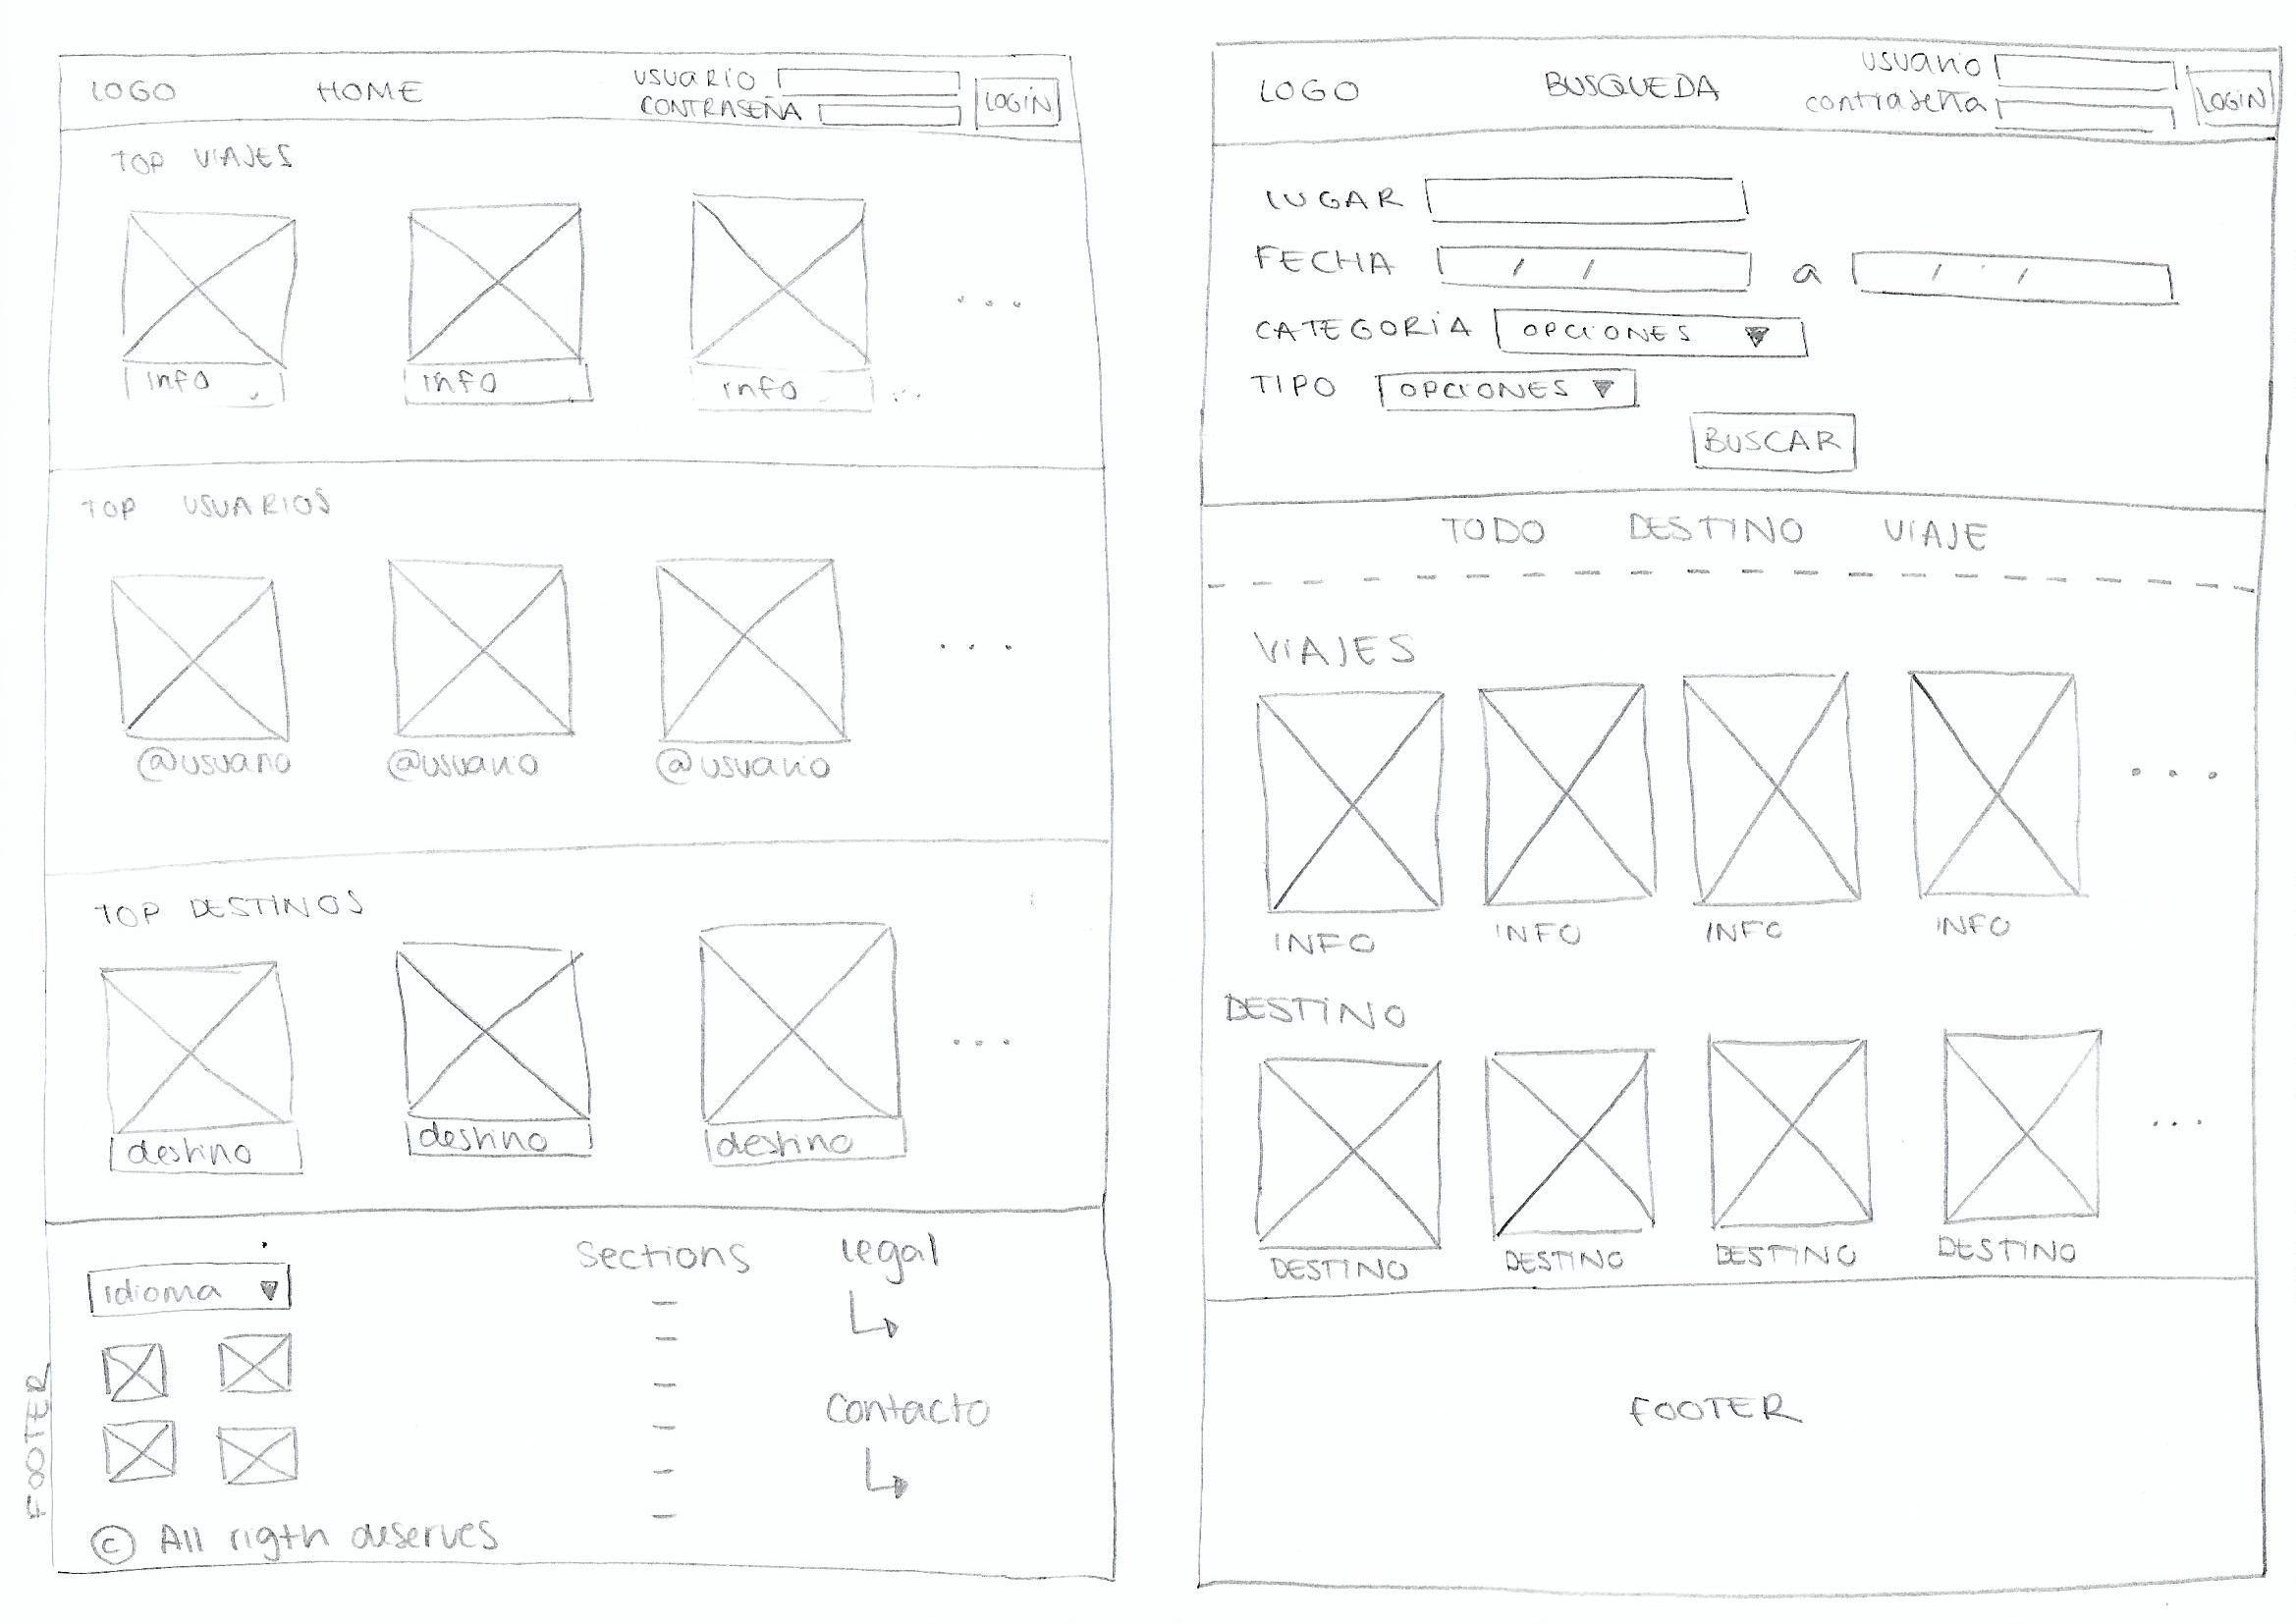 LOGO HOME USUARIO
CONTRASEÑA LOGIN
TOP VIAJES
info info info
TOP USUARIOS
@usuario @usuario @usuario
TOP DESTINOS
destino destino destino
FOOTER
idioma sections legal
contacto
© All rigth deserves
LOGO BUSQUEDA usuario
contraseña LOGIN
LUGAR
FECHA / / a / /
CATEGORIA OPCIONES
TIPO OPCIONES
BUSCAR
TODO DESTINO VIAJE
VIAJES
INFO INFO INFO INFO
DESTINO
DESTINO DESTINO DESTINO DESTINO
FOOTER